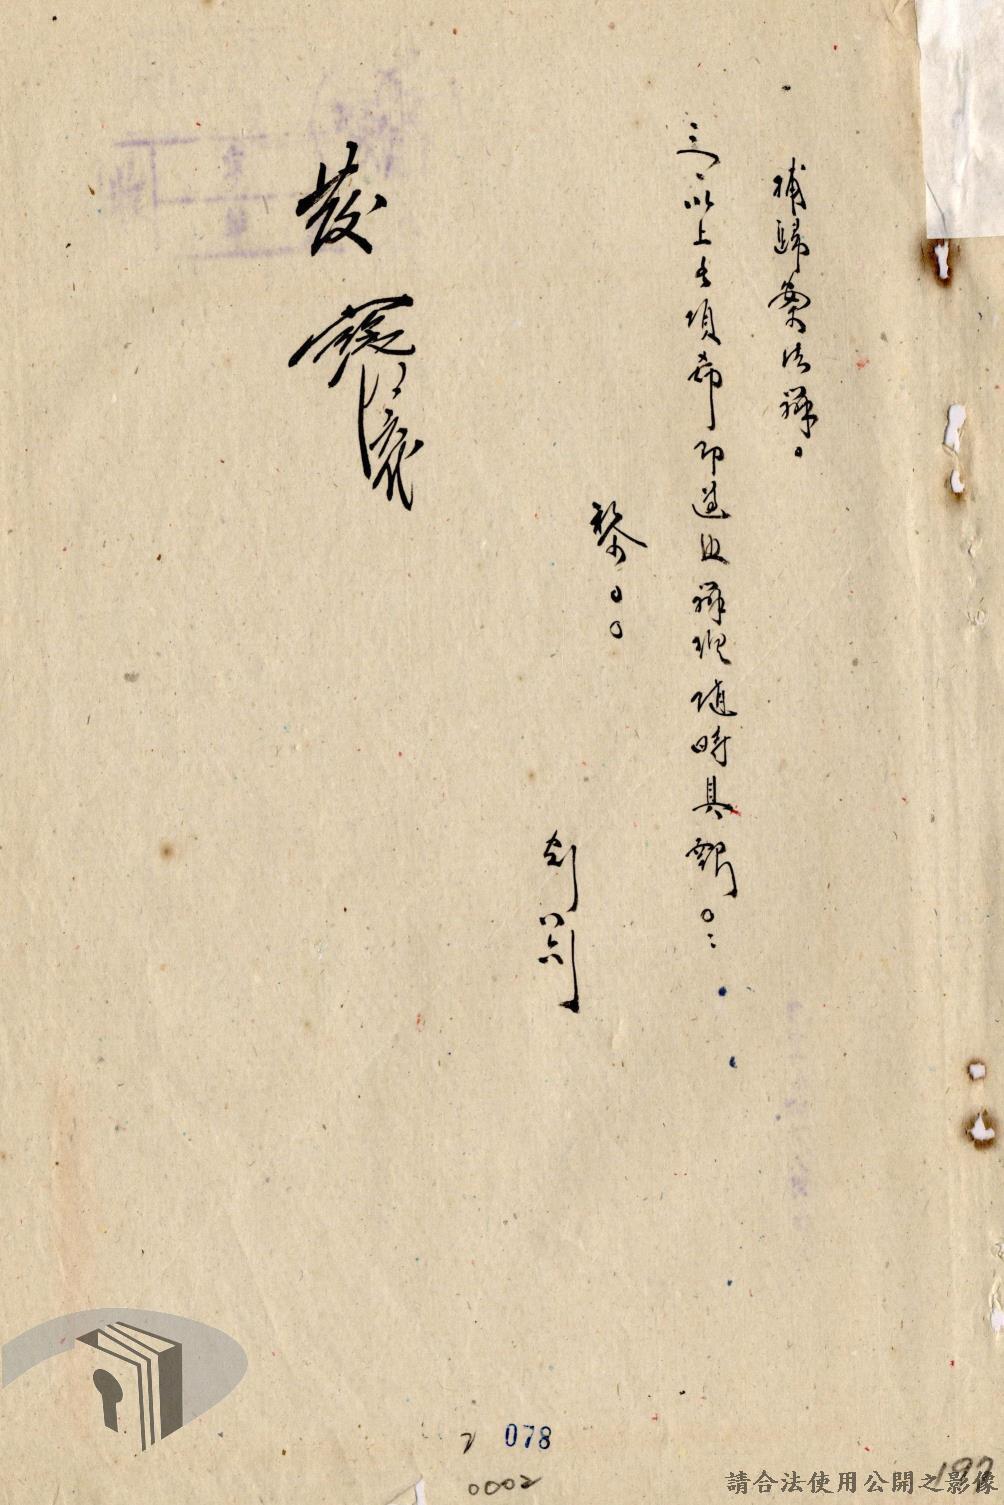 補歸案法辦。
三、以上各項希即遵照辦理隨時具報。
黎〇〇
發
078
0002
請合法使用公開之影像